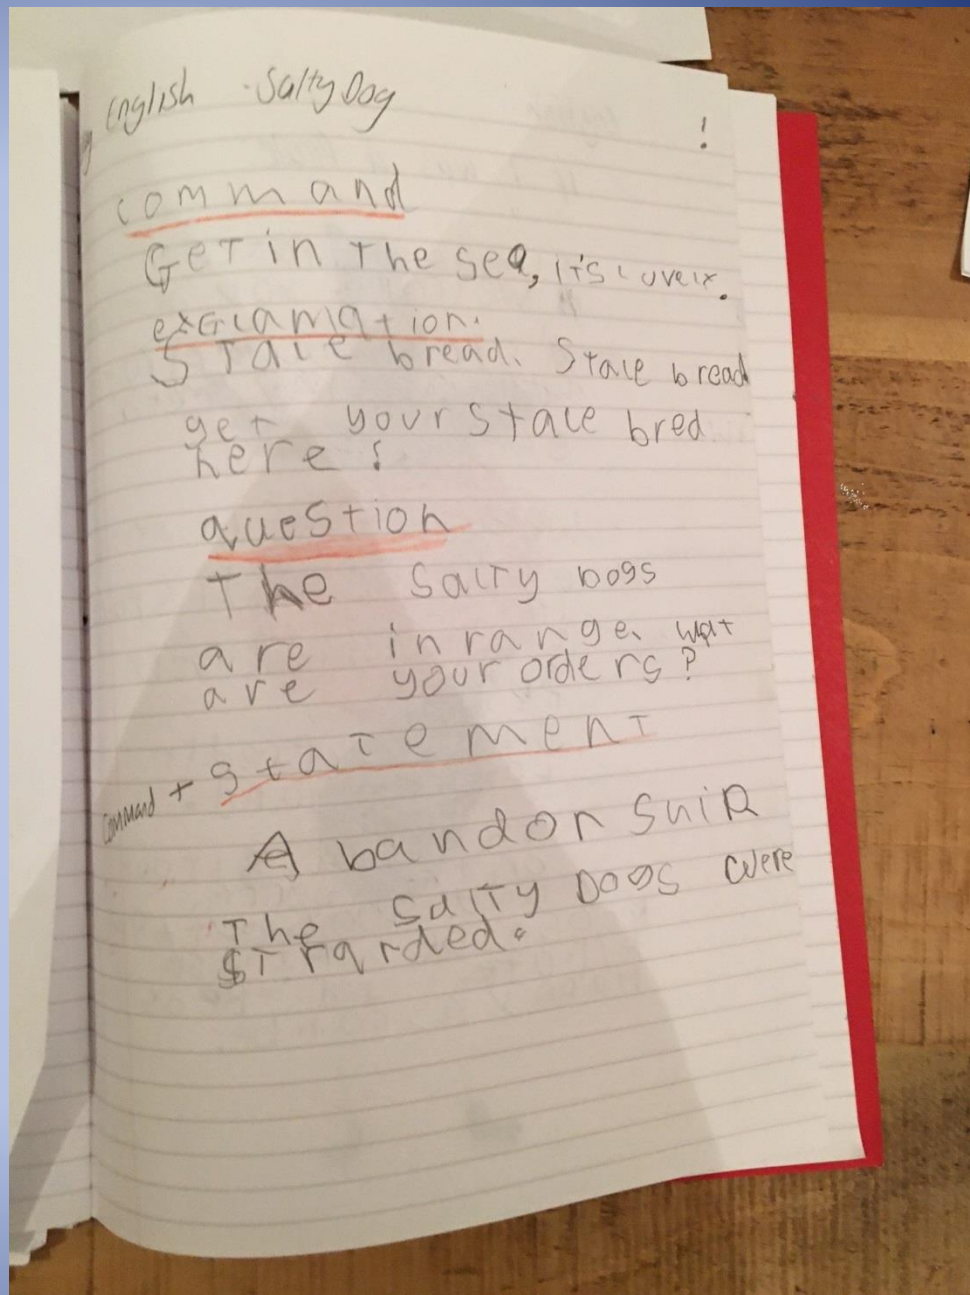 English · Salty Dog
!
command
Get in the sea, it's lovely.
exclamation.
Stale bread. Stale bread
get your stale bred
here!
question
The Salty Dogs
are in range. wat
are your orders?
Command + statement
Abandon Ship
The Salty Dogs were
stranded.